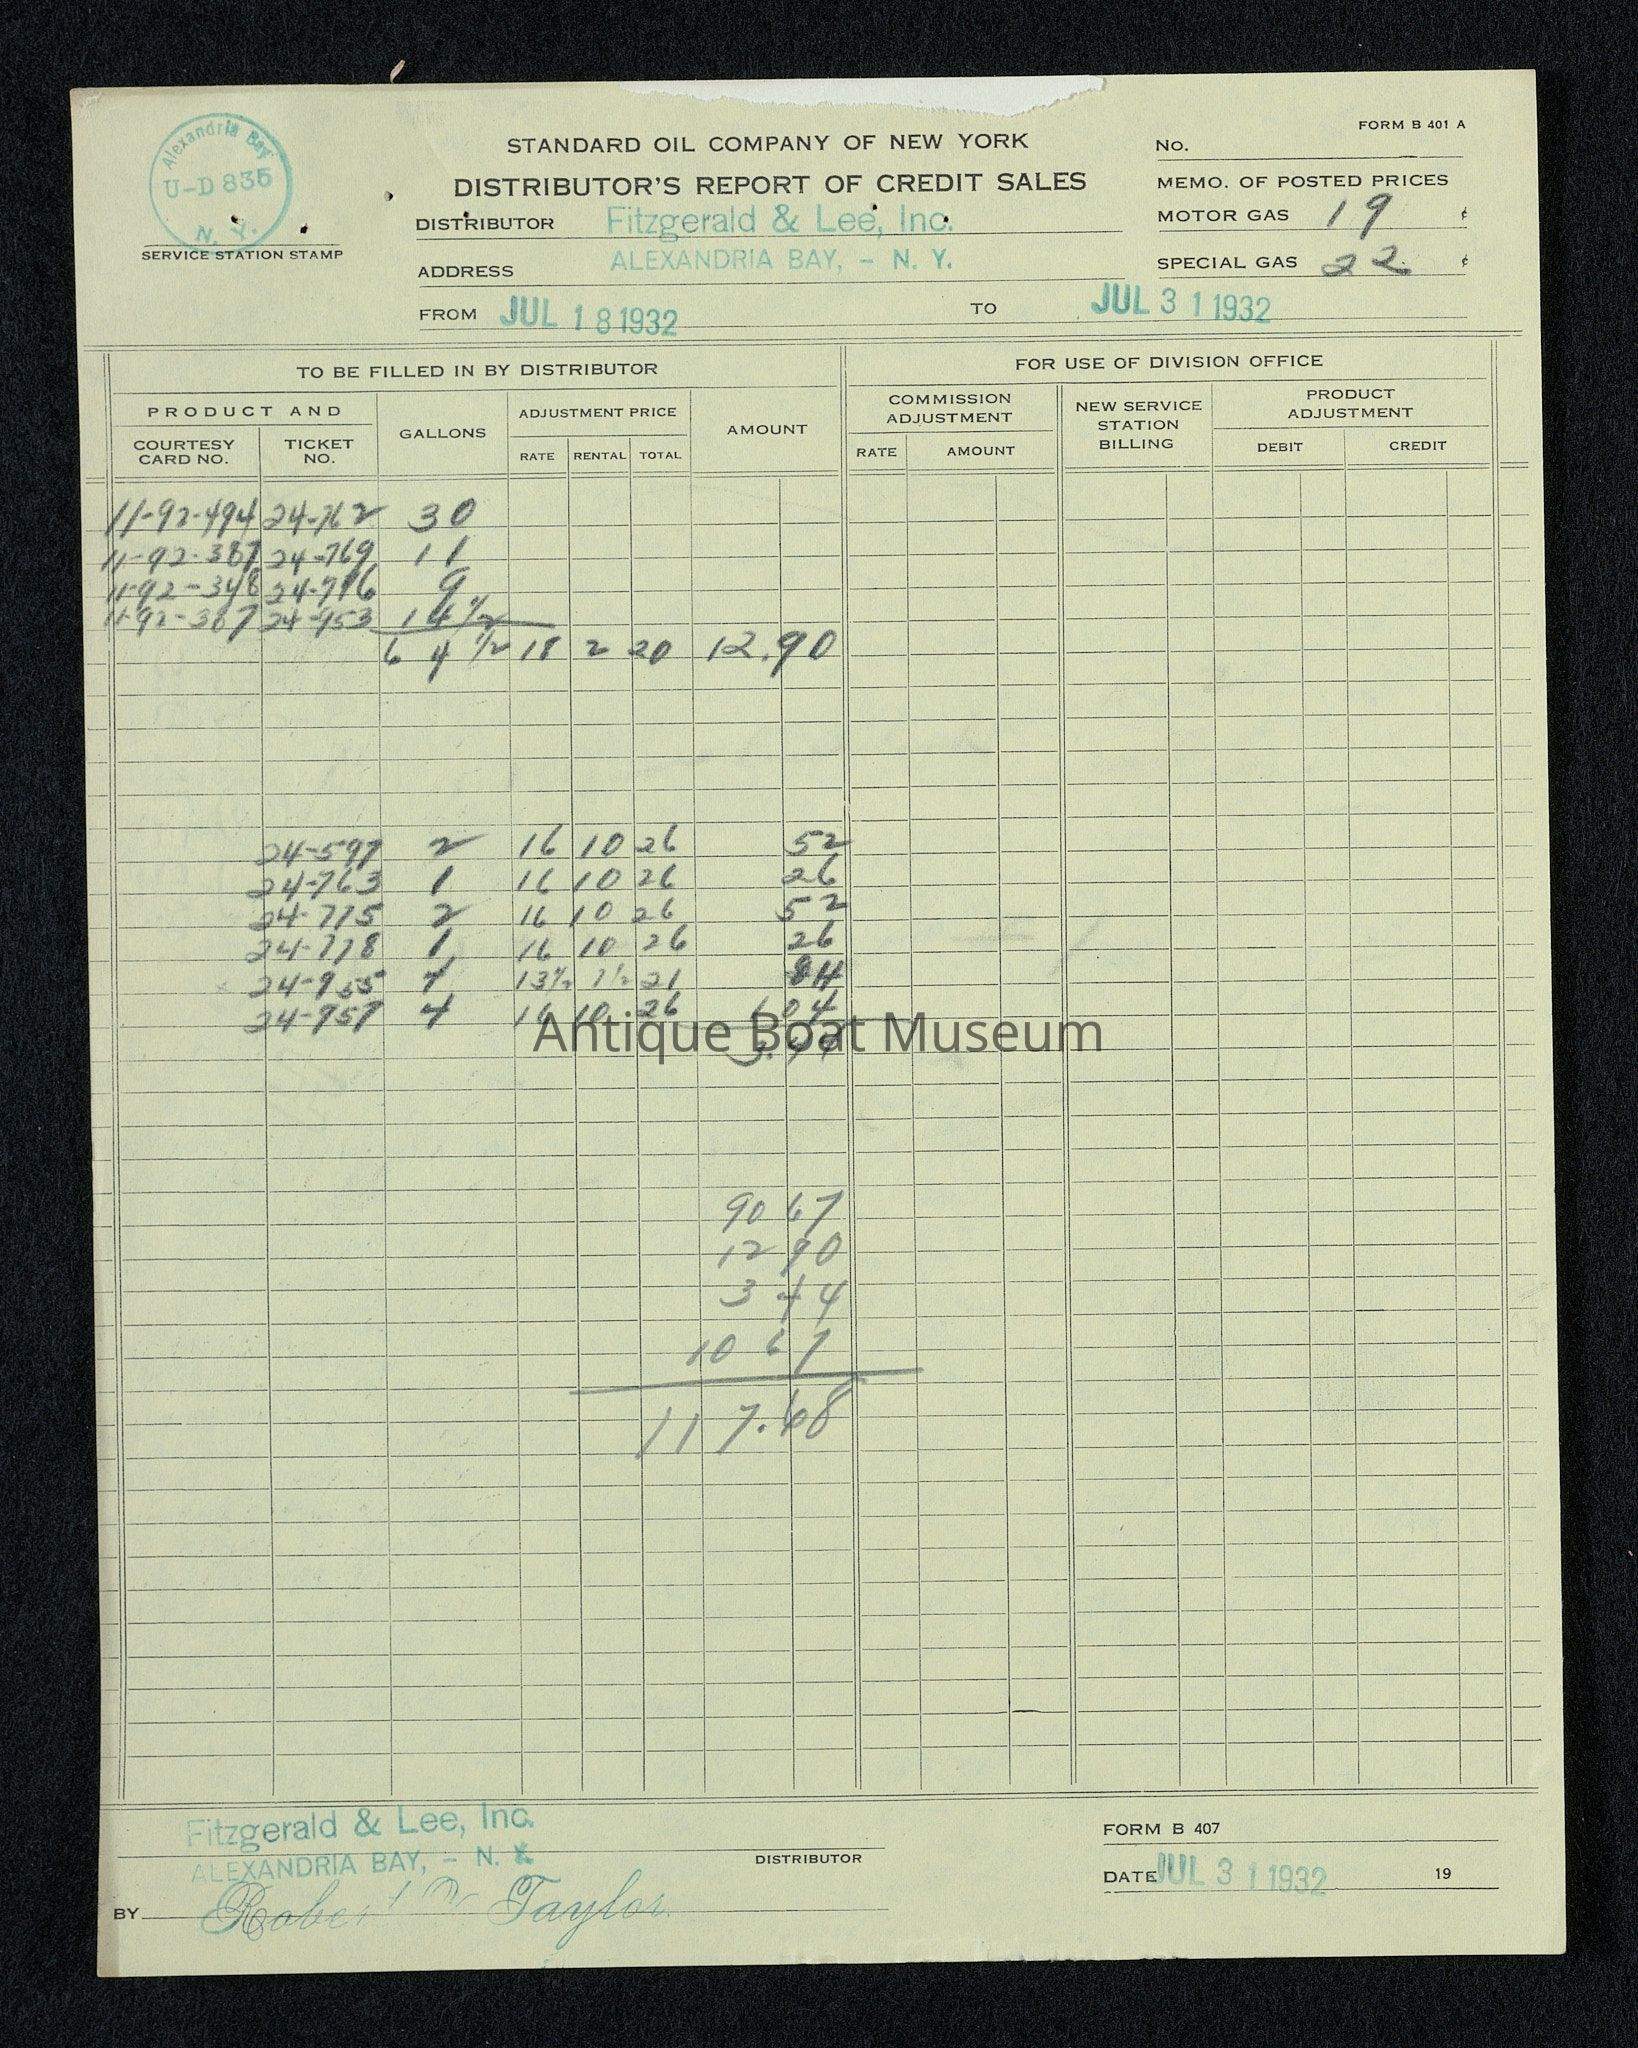 Alexandria Bay
U-D 835
N. Y.
SERVICE STATION STAMP
FORM B 401 A
STANDARD OIL COMPANY OF NEW YORK
DISTRIBUTOR'S REPORT OF CREDIT SALES
DISTRIBUTOR Fitzgerald & Lee, Inc.
ADDRESS ALEXANDRIA BAY, - N. Y.
FROM JUL 18 1932 TO JUL 31 1932
No.
MEMO. OF POSTED PRICES
MOTOR GAS 19 ¢
SPECIAL GAS 22 ¢
TO BE FILLED IN BY DISTRIBUTOR
FOR USE OF DIVISION OFFICE
PRODUCT AND
COURTESY CARD NO.
TICKET NO.
GALLONS
ADJUSTMENT PRICE
RATE RENTAL TOTAL
AMOUNT
COMMISSION ADJUSTMENT
RATE AMOUNT
NEW SERVICE STATION BILLING
PRODUCT ADJUSTMENT
DEBIT CREDIT
11-92-494 24-762 30
11-92-387 24-769 11
11-92-348 24-776 9
11-92-387 24-953 14 1/2
64 1/2 18 2 20 12.90
24-597 2 16 10 26 52
24-763 1 16 10 26 26
24-775 2 16 10 26 52
24-778 1 16 10 26 26
24-955 4 13 1/2 7 1/2 21 84
24-957 4 16 10 26 1 04
3.44
Antique Boat Museum
90 67
12 90
3 44
10 67
117.68
Fitzgerald & Lee, Inc.
ALEXANDRIA BAY, - N. Y.
DISTRIBUTOR
BY Robert Taylor
FORM B 407
DATE JUL 31 1932 19